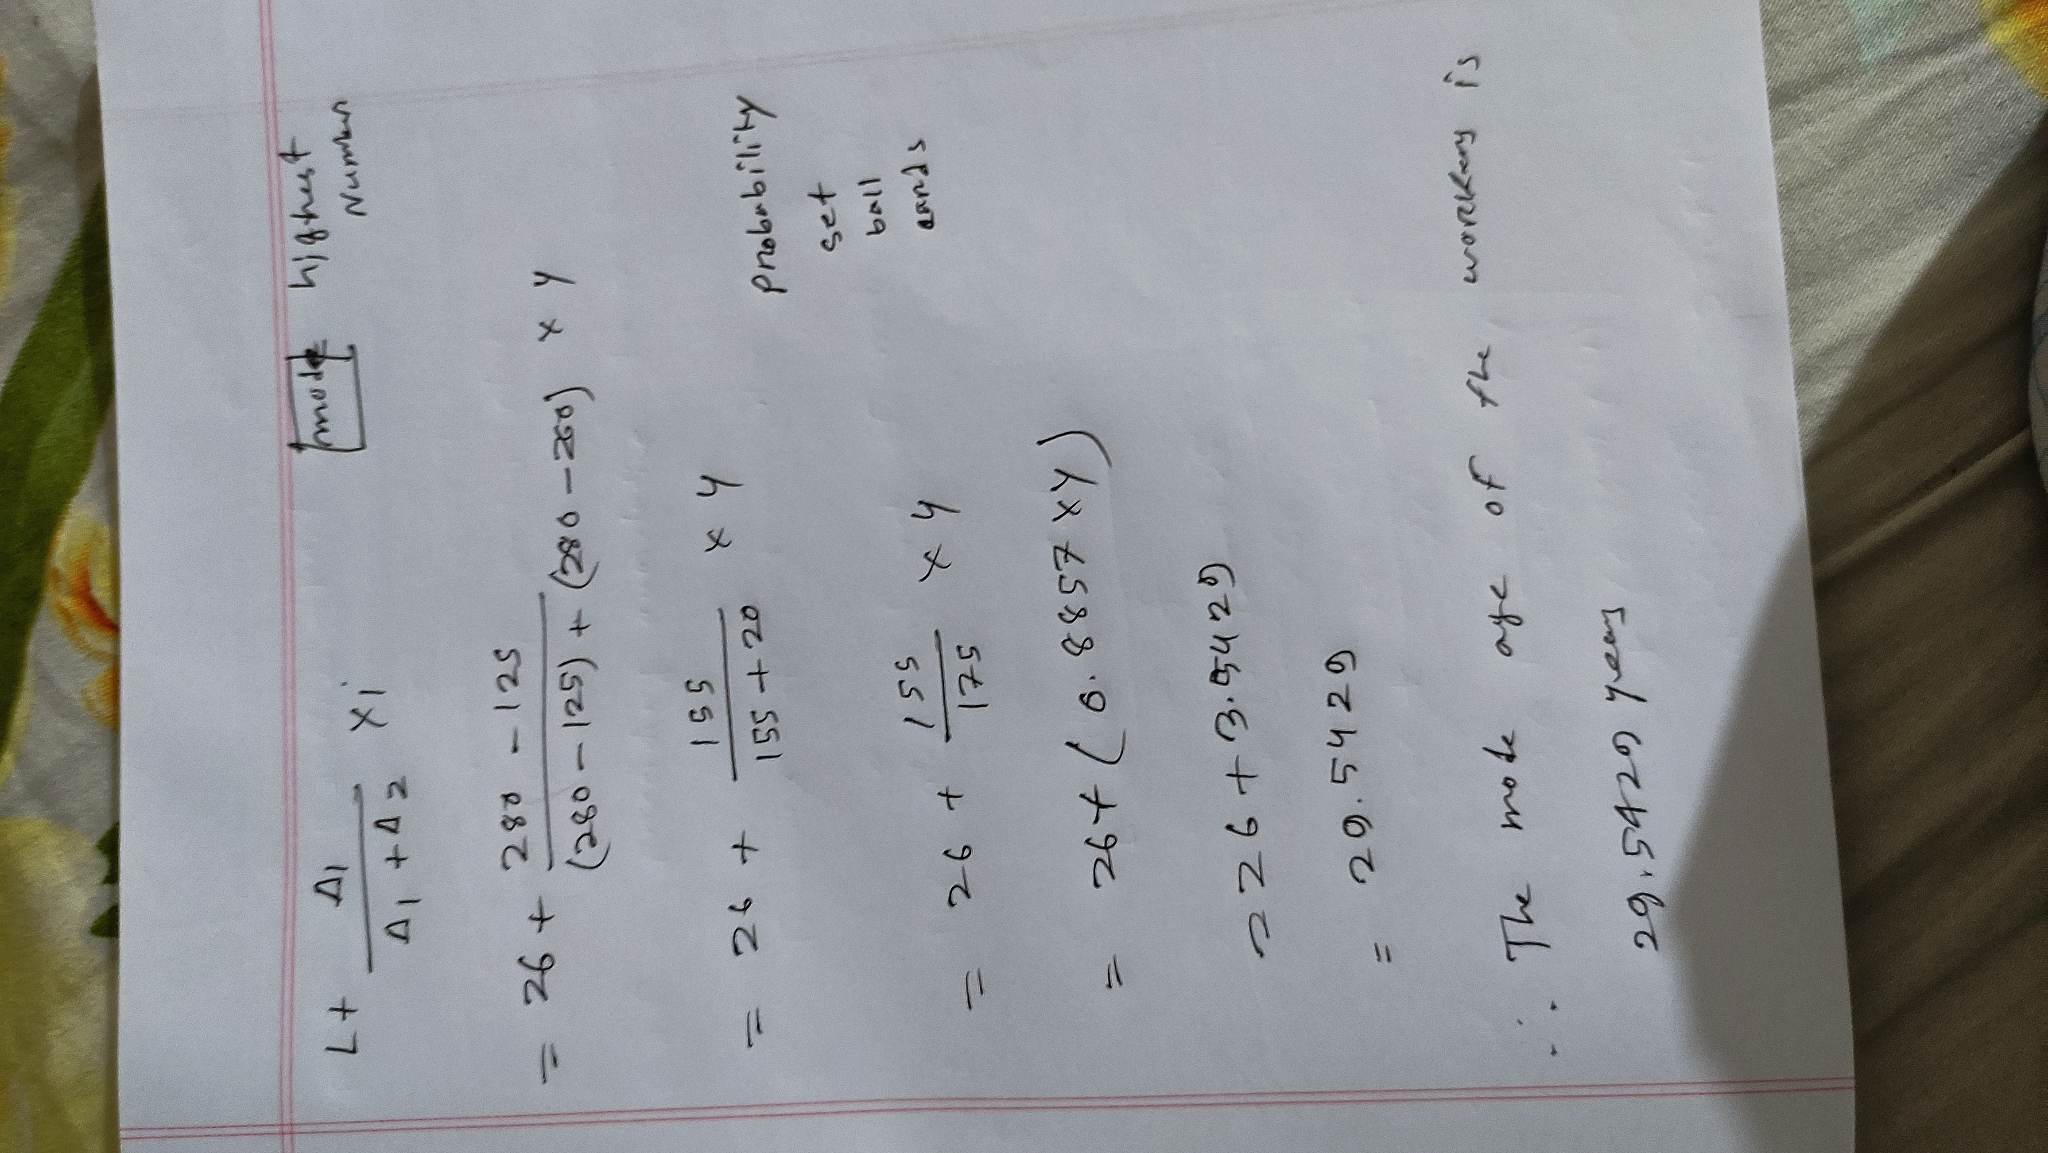 L + Δ1 / Δ1 + Δ2 × i
mode highest
Number
= 26 + 280 - 125 / (280 - 125) + (280 - 260) × 4
= 26 + 155 / 155 + 20 × 4
probability
set
ball
cards
= 26 + 155 / 175 × 4
= 26 + (0.8857 × 4)
= 26 + 3.5429
= 29.5429
∴ The mode age of the workers is
29.5429 years